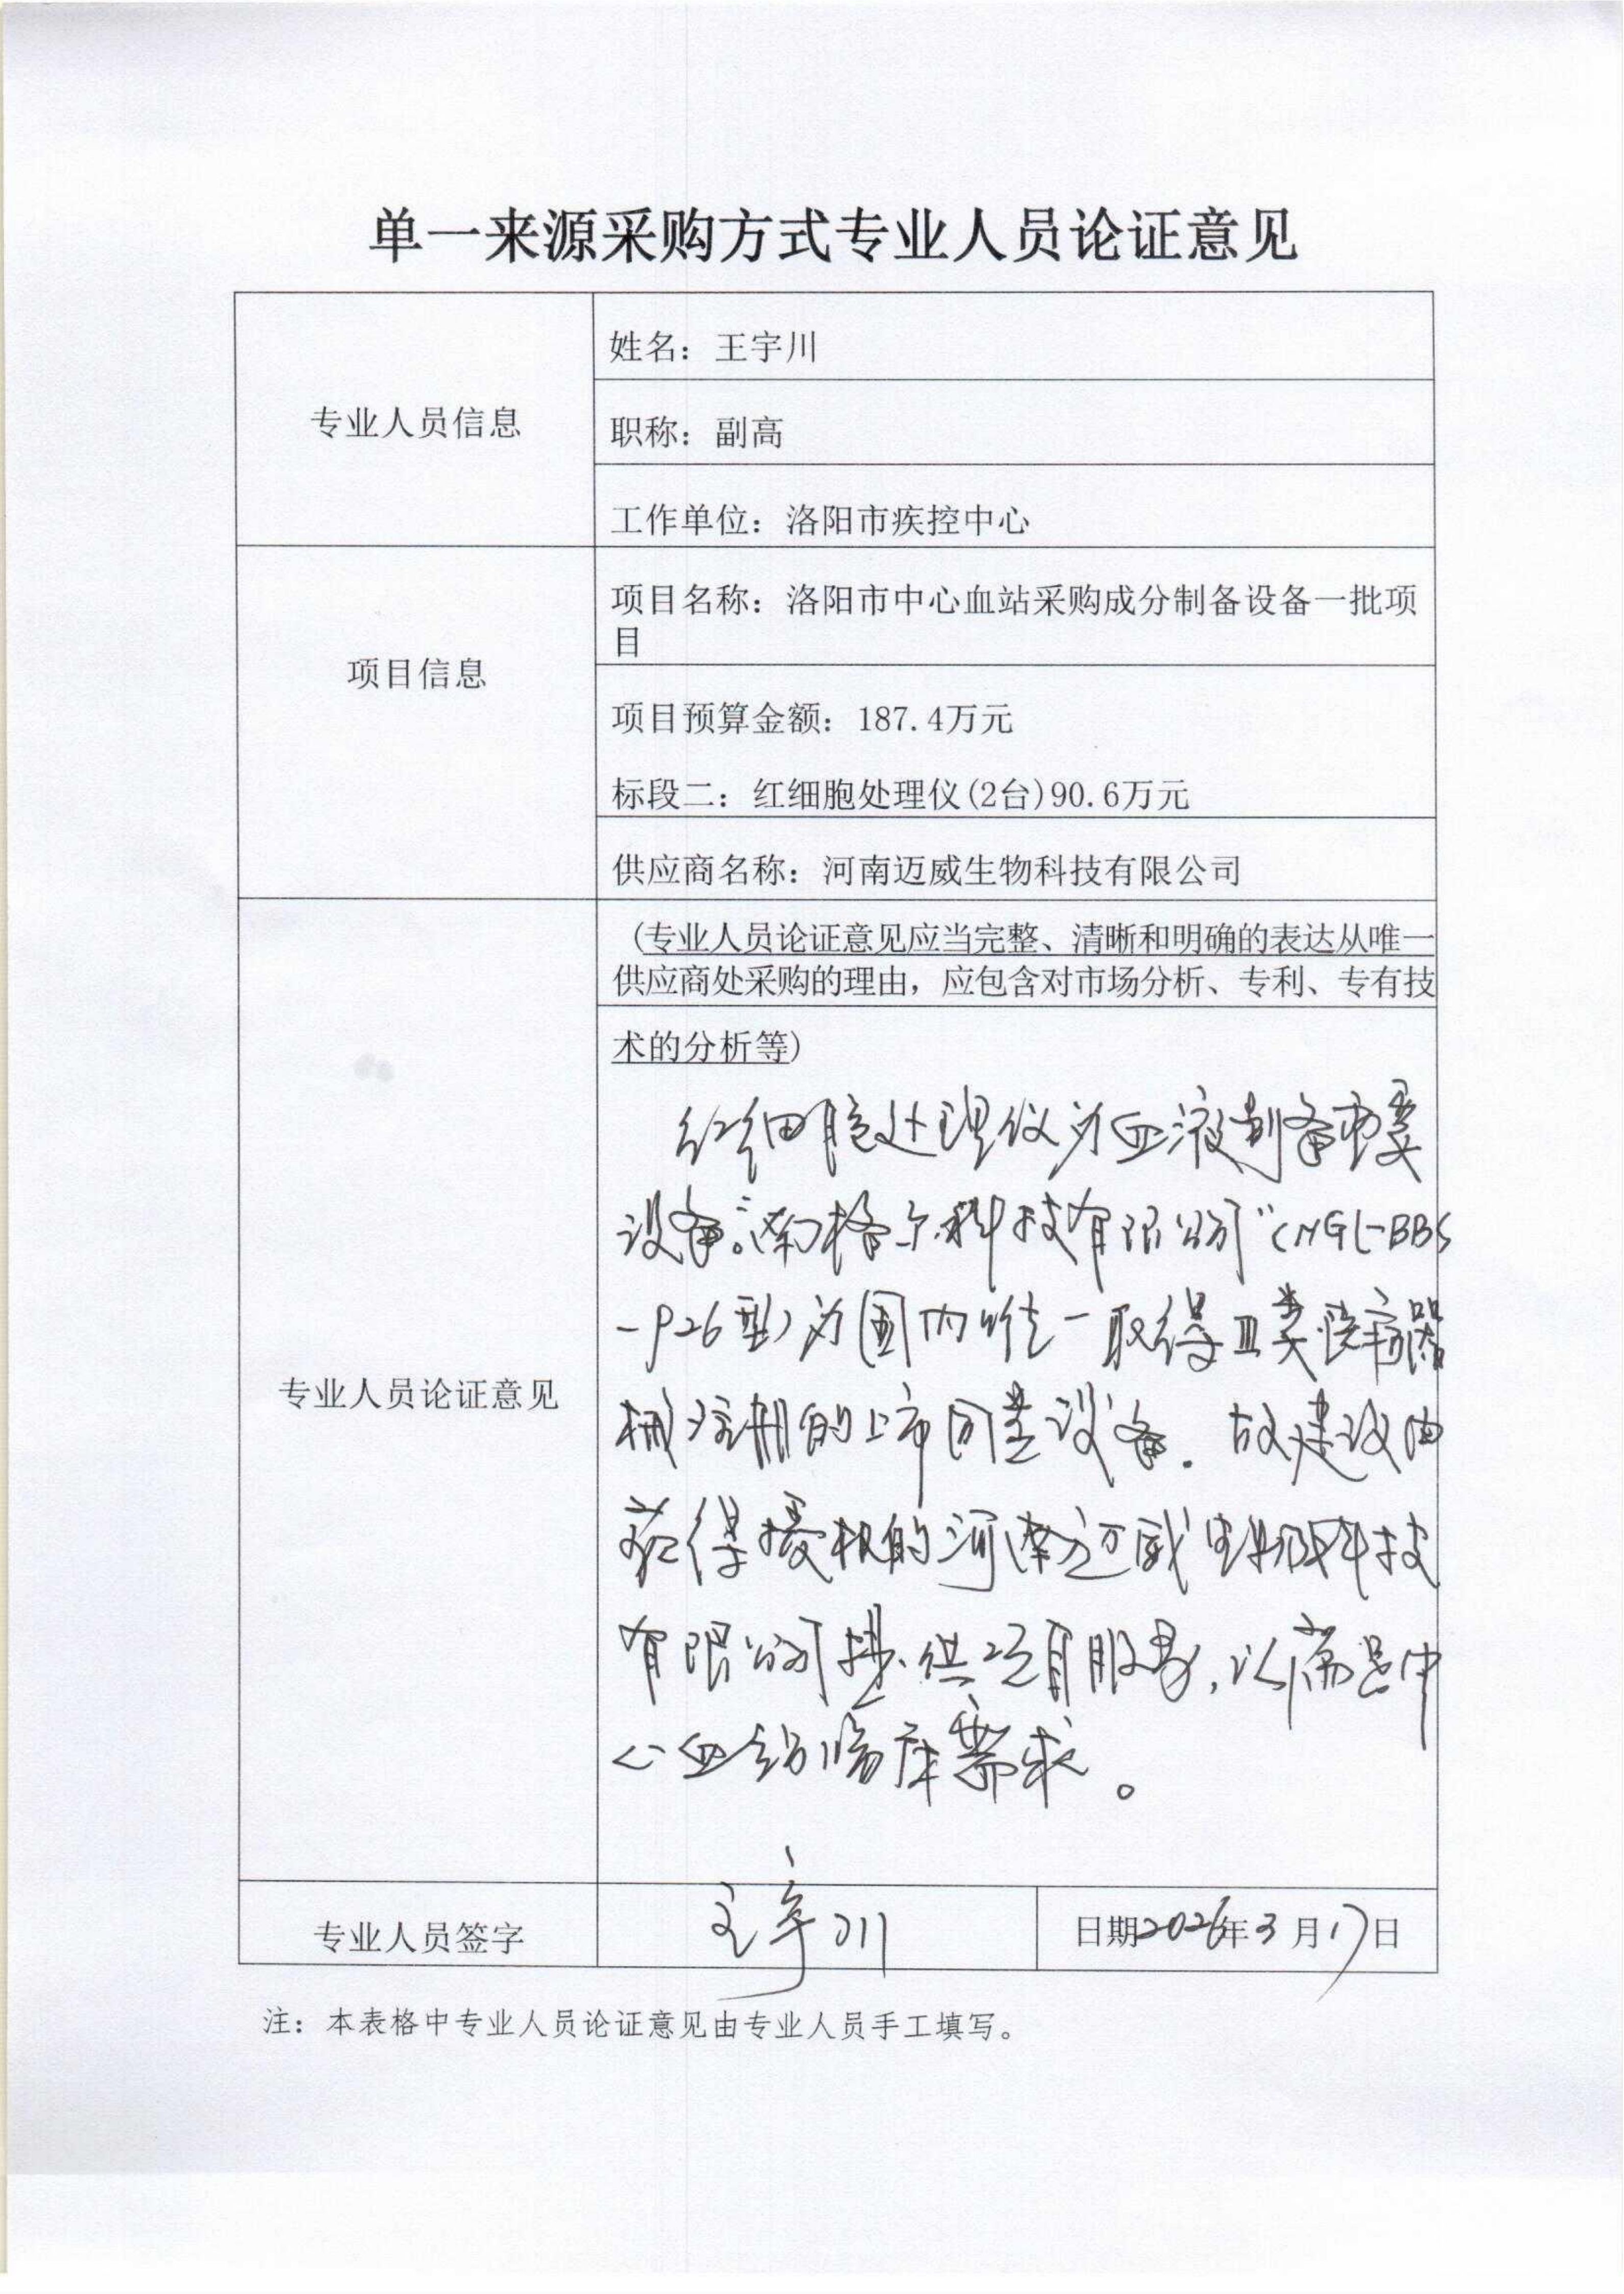 单一来源采购方式专业人员论证意见
专业人员信息
姓名：王宇川
职称：副高
工作单位：洛阳市疾控中心
项目信息
项目名称：洛阳市中心血站采购成分制备设备一批项
目
项目预算金额：187.4万元
标段二：红细胞处理仪(2台)90.6万元
供应商名称：河南迈威生物科技有限公司
专业人员论证意见
（专业人员论证意见应当完整、清晰和明确的表达从唯一
供应商处采购的理由，应包含对市场分析、专利、专有技
术的分析等）
红细胞处理仪为血液制备重要
设备。"南格尔科技有限公司"（NGL-BBS
-926型）为国内唯一取得Ⅲ类医疗器
械注册的上市同类设备．故建议由
获得授权的河南迈威生物科技
有限公司提供项目服务，以满足中
心血站临床需求。
专业人员签字
王宇川
日期2026年3月17日
注：本表格中专业人员论证意见由专业人员手工填写。